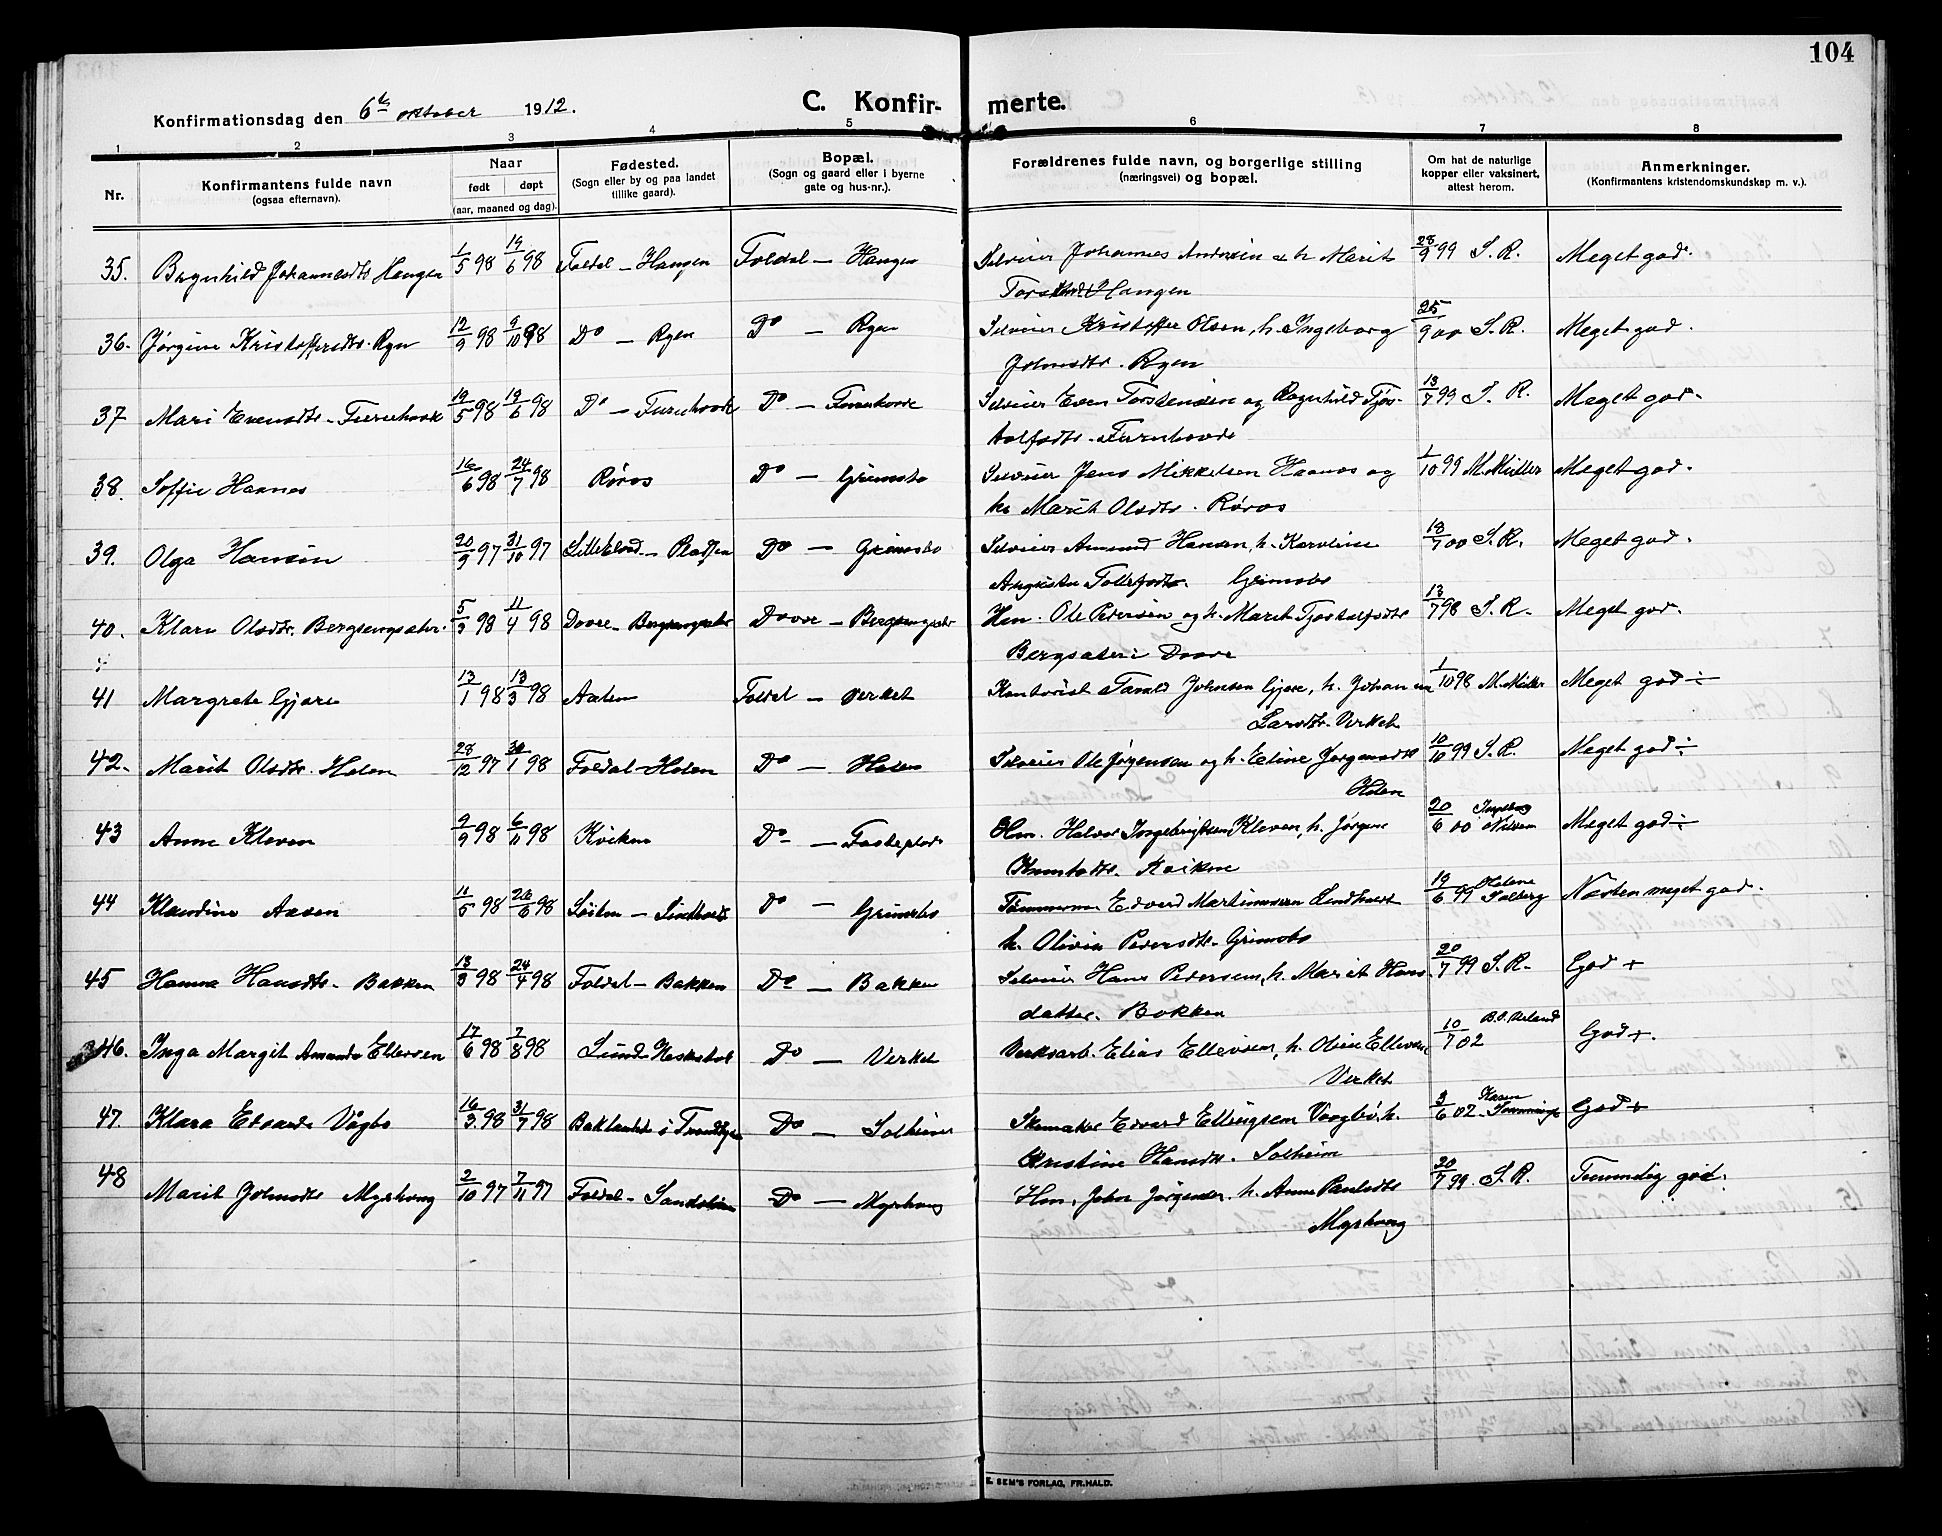 104
Konfirmationsdag den 6te oktober 1912.
C. Konfir- merte.
1 2 3 4 5 6 7 8
Nr.
Konfirmantens fulde navn
(ogsaa efternavn).
Naar
født døpt
(aar, maaned og dag).
Fødested.
(Sogn eller by og paa landet
tillike gaard).
Bopæl.
(Sogn og gaard eller i byerne
gate og hus-nr.).
Forældrenes fulde navn, og borgerlige stilling
(næringsvei) og bopæl.
Om hat de naturlige
kopper eller vaksinert,
attest herom.
Anmerkninger.
(Konfirmantens kristendomskundskap m. v.).
35. Johannesdtr Haugen 1/5 98 19/6 98 Foldal - Haugen Foldal - Haugen Selveier Johannes h. Marit 28/9 99 S. R. Meget god.
Haugen
36. Jørgine Kristoffersdtr. Ryen 12/9 98 9/10 98 Do - Ryen Do - Ryen Selveier Kristoffer Olsen, h. Ingeborg 25/9 00 S. R. Meget god.
Johnsdtr. Ryen
37 Mari Evensdtr. Furuhovde 19/5 98 19/6 98 Do - Furuhovde Do - Furuhovde Selveier Even Torstensen og Ragnhild Tjøs- 13/7 99 S. R. Meget god.
tolfsdtr. Furuhovde
38. Soffie Haanes 16/6 98 24/7 98 Røros Do - Grimsbo Selveier Jens Mikkelsen Haanes og 1/10 99 M. Müller Meget god.
h. Marit Olsdtr. Røros
39. Olga Hansen 20/9 97 31/10 97 Lilleelvd. - Do - Grimsbo Selveier Amund Hansen, h. Karoline 18/7 00 S. R. Meget god.
Augusta Tollefsdtr. Grimsbo
40. Klara Olsdtr. Bergsengsæter. 5/3 98 11/4 98 Dovre - Bergsengsæter Dovre - Bergsengsæter Hm. Ole Pedersen og h. Marit Tjøstolfsdtr 13/7 98 S. R. Meget god.
Bergsæter i Dovre
41 Margrete Gjøre 13/1 98 13/3 98 Aalen Foldal - Verket Kontorist Johnsen Gjøre, h. Johanna 1/10 98 M. Müller Meget god ÷
Larsdtr. Verket
42. Marit Olsdtr. Holen 28/12 97 30/1 98 Foldal - Holen Do - Holen Selveier Ole Jørgensen og h. Eline Jørgensdtr 10/10 99 S. R. Meget god ÷
Holen
43 Anne Kleven 9/9 98 6/11 98 Kvikne Do - Hm. Halvor Ingebrigtsen Kleven, h. Jørgine 20/6 00 Ingeborg Nilsen Meget god ÷
Knutsdtr. Kvikne
44 Klaudine Aasen 11/5 98 26/6 98 Do - Grimsbo Tømmerm. Edvard Martinussen 19/6 99 Helene Solberg Næsten meget god.
h. Olivia Pedersdtr. Grimsbo
45 Hanna Hansdtr. Bakken 13/3 98 24/4 98 Foldal - Bakken Do - Bakken Selveier Hans Pedersen, h. Marit Hans- 20/7 99 S. R. God +
datter. Bakken
46. Inga Margit Amanda Ellevsen 17/6 98 7/8 98 Lund Do - Verket Verksarb. Elias Ellevsen, h. Oline Ellevsen 10/7 02 God +.
Verket
47. Klara Edvarda Vågbø 16/3 98 31/7 98 Baklandet i Do - Solheim Skomaker Edvard Ellingsen Vaagbø, h. 3/6 02 Karen God +
Kristine Hansdtr. Solheim
48 Marit Johnsdtr Myrhaug 2/10 97 7/11 97 Foldal - Do - Myrhaug Hm. John Jørgensen h. Anne Paulsdtr 20/7 99. S. R. Temmelig god.
Myrhaug
E. SEM'S FORLAG, FR.HALD.